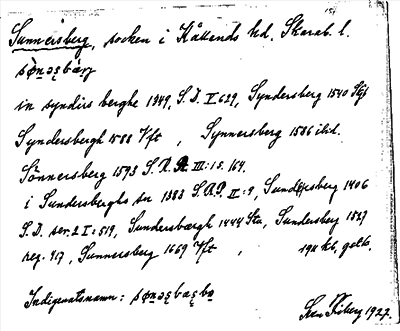 Sunnersberg, socken i Kållands hd, Skarab. l.
in syndirs berghe 1349, S.D. V 629, Syndersberg 1540
Syndersbergh 1588 Vft, Synnersberg 1586 ibid.
Sönnersberg 1593 S.R. III:15. 164.
i Sundersberghs sn 1383 S.R.P. II:9, Sundersberg 1406
S.D. ser. 2 I:519, Sundersbærgh 1444 Stu, Sundersberg 1527
reg. 417, Sunnersberg 1669 Vft,
Indigenatsnamn:
1927.